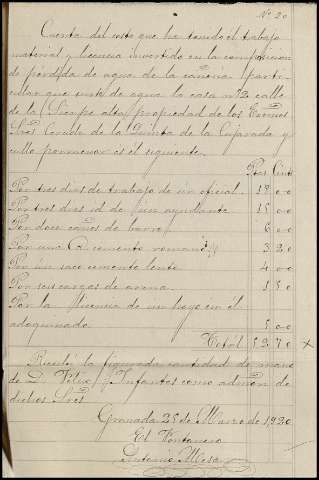 Nº 20
Cuenta del costo que ha tenido el trabajo
material y licencia invertido en la composicion
de perdida de agua de la cañeria parti-
cullar que surte de agua la casa nº 2 calle
de la Sierpe alta, propiedad de los Ecxmos
Sres Conde de la Quinta de la Enjarada y
cullo pormenor es el siguiente.
Ptas Cents
Por tres dias de trabajo de un oficial 18 00
Por tres dias id de un ayudante 15 00
Por doce caños de barro 6 00
Por una @ cemento romano 3 20
Por un saco cemento lento 4 00
Por seis cargas de arena 1 50
Por la licencia de un hoyo en el
adoquinado 5 00
Total 52 70
Recibí la figurada cantidad de mano
de D. Felix Infantes como admon de
dichos Sres
Granada 25 de Marzo de 1920
El Fontanero
Antonio Mesa